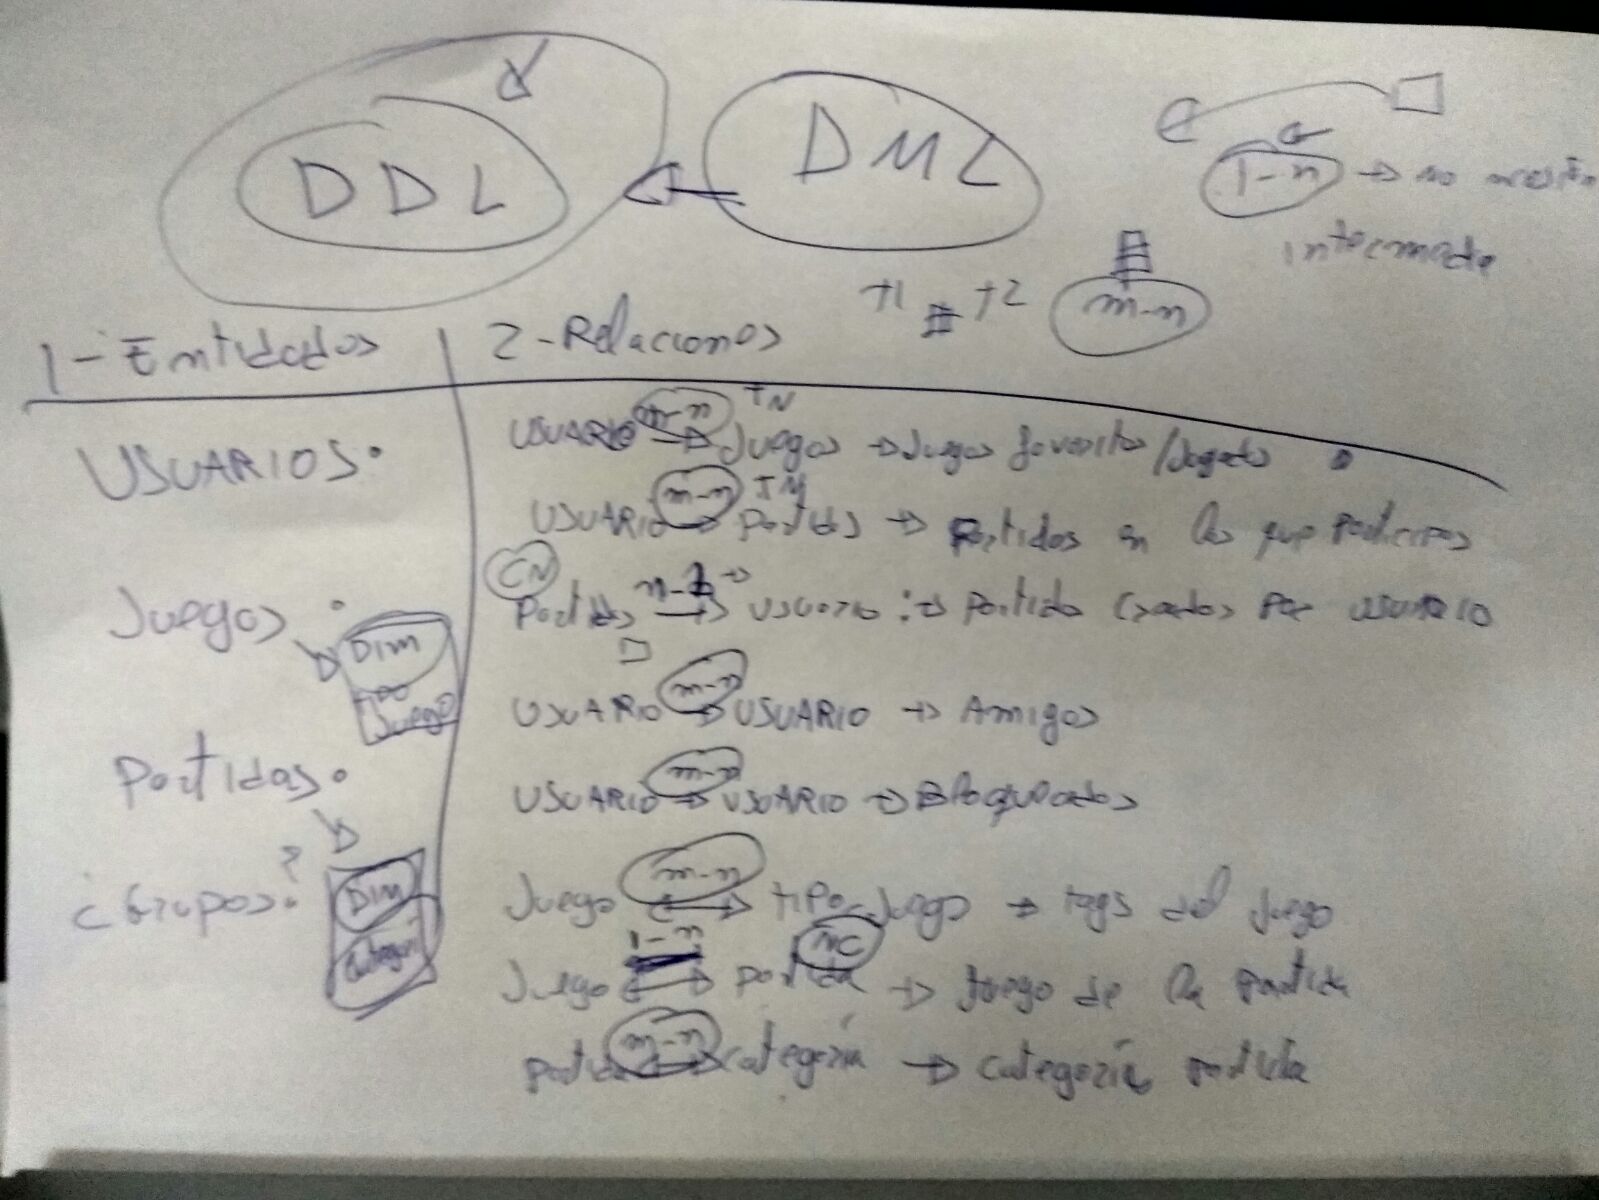 DDL
DML
1-n → no
intermedia
T1 T2
m-n
1-Entidades
2-Relaciones
USUARIOS
Juegos
Dim
Juego
Partidas
¿Grupos?
Dim
USUARIO m-n Juegos → Juegos favoritos/Jugados
USUARIO m-n → Partidas → Partidas en las que participas
Partidas → usuario : → Partida creados por usuario
USUARIO m-n → USUARIO → Amigos
USUARIO m-n → USUARIO → Bloqueados
Juego m-n ↔ tipo Juego → tags del juego
Juego 1-n ↔ partida → Juego de la partida
partida m-n ↔ categoría → categoría partida